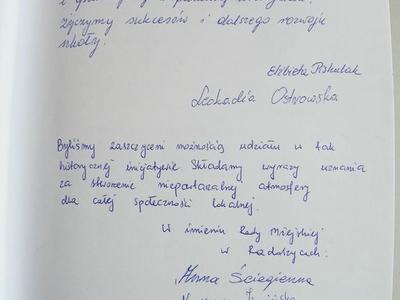 Życzymy sukcesów i dalszego rozwoju
szkoły.
Elżbieta
Leokadia Ostrowska
Byliśmy zaszczyceni możnością udziału w tak
historycznej inicjatywie. Składamy wyrazy uznania
za stworzenie niepowtarzalnej atmosfery
dla całej społeczności lokalnej.
W imieniu Rady Miejskiej
w Radoszycach:
Anna Ściegienna